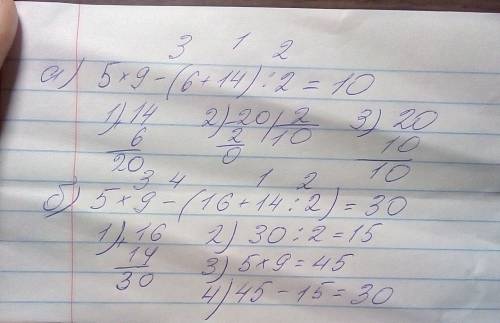 3 1 2
а) 5×9-(6+14):2=10
1) 14 2) 20 | 2 3) 20
6 2 10 10
20 0 10
3 4 1 2
б) 5×9-(16+14:2)=30
1) 16 2) 30:2=15
14 3) 5×9=45
30 4) 45-15=30